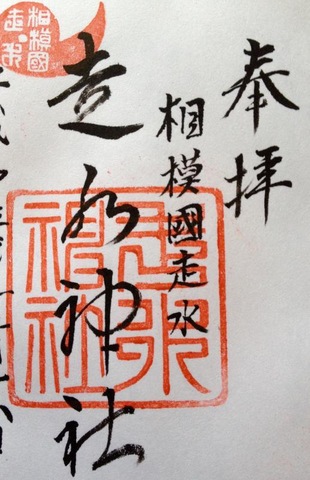 奉拝
相模國走水
走水神社
相模國
走水
走水
神社